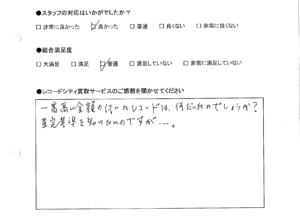 ●スタッフの対応はいかがでしたか？
□非常に良かった ☑良かった □普通 □良くない □非常に良くない
●総合満足度
□大満足 □満足 ☑普通 □満足していない □非常に満足していない
●レコードシティ買取サービスのご感想を聞かせてください
一番高い金額の付いたレコードは、何だったのでしょうか？
査定基準を知りたいのですが…。